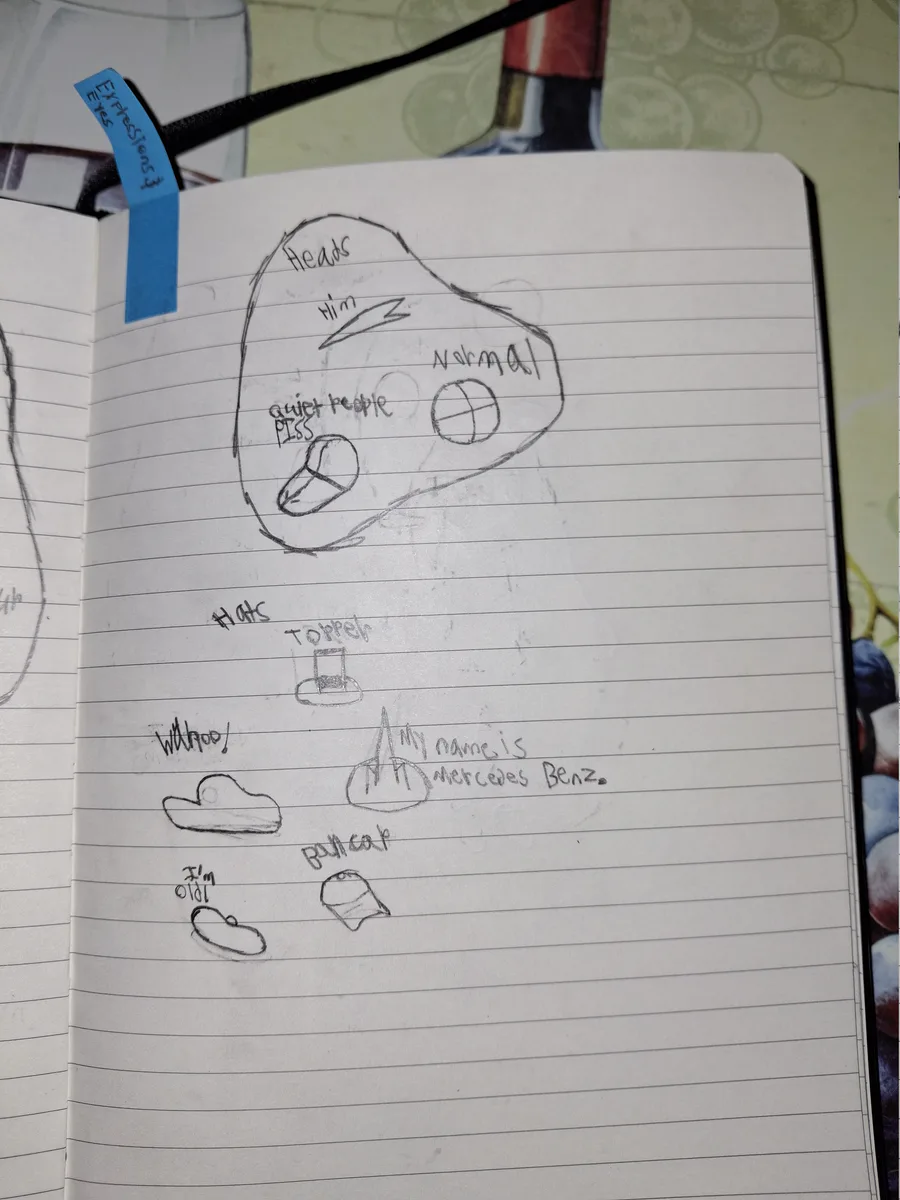 Expressions &
Eyes
Heads
Him
Normal
quiet People
PISS
Hats
Topper
Wahoo!
My name is
Mercedes Benz.
Ball cap
I'm
old!